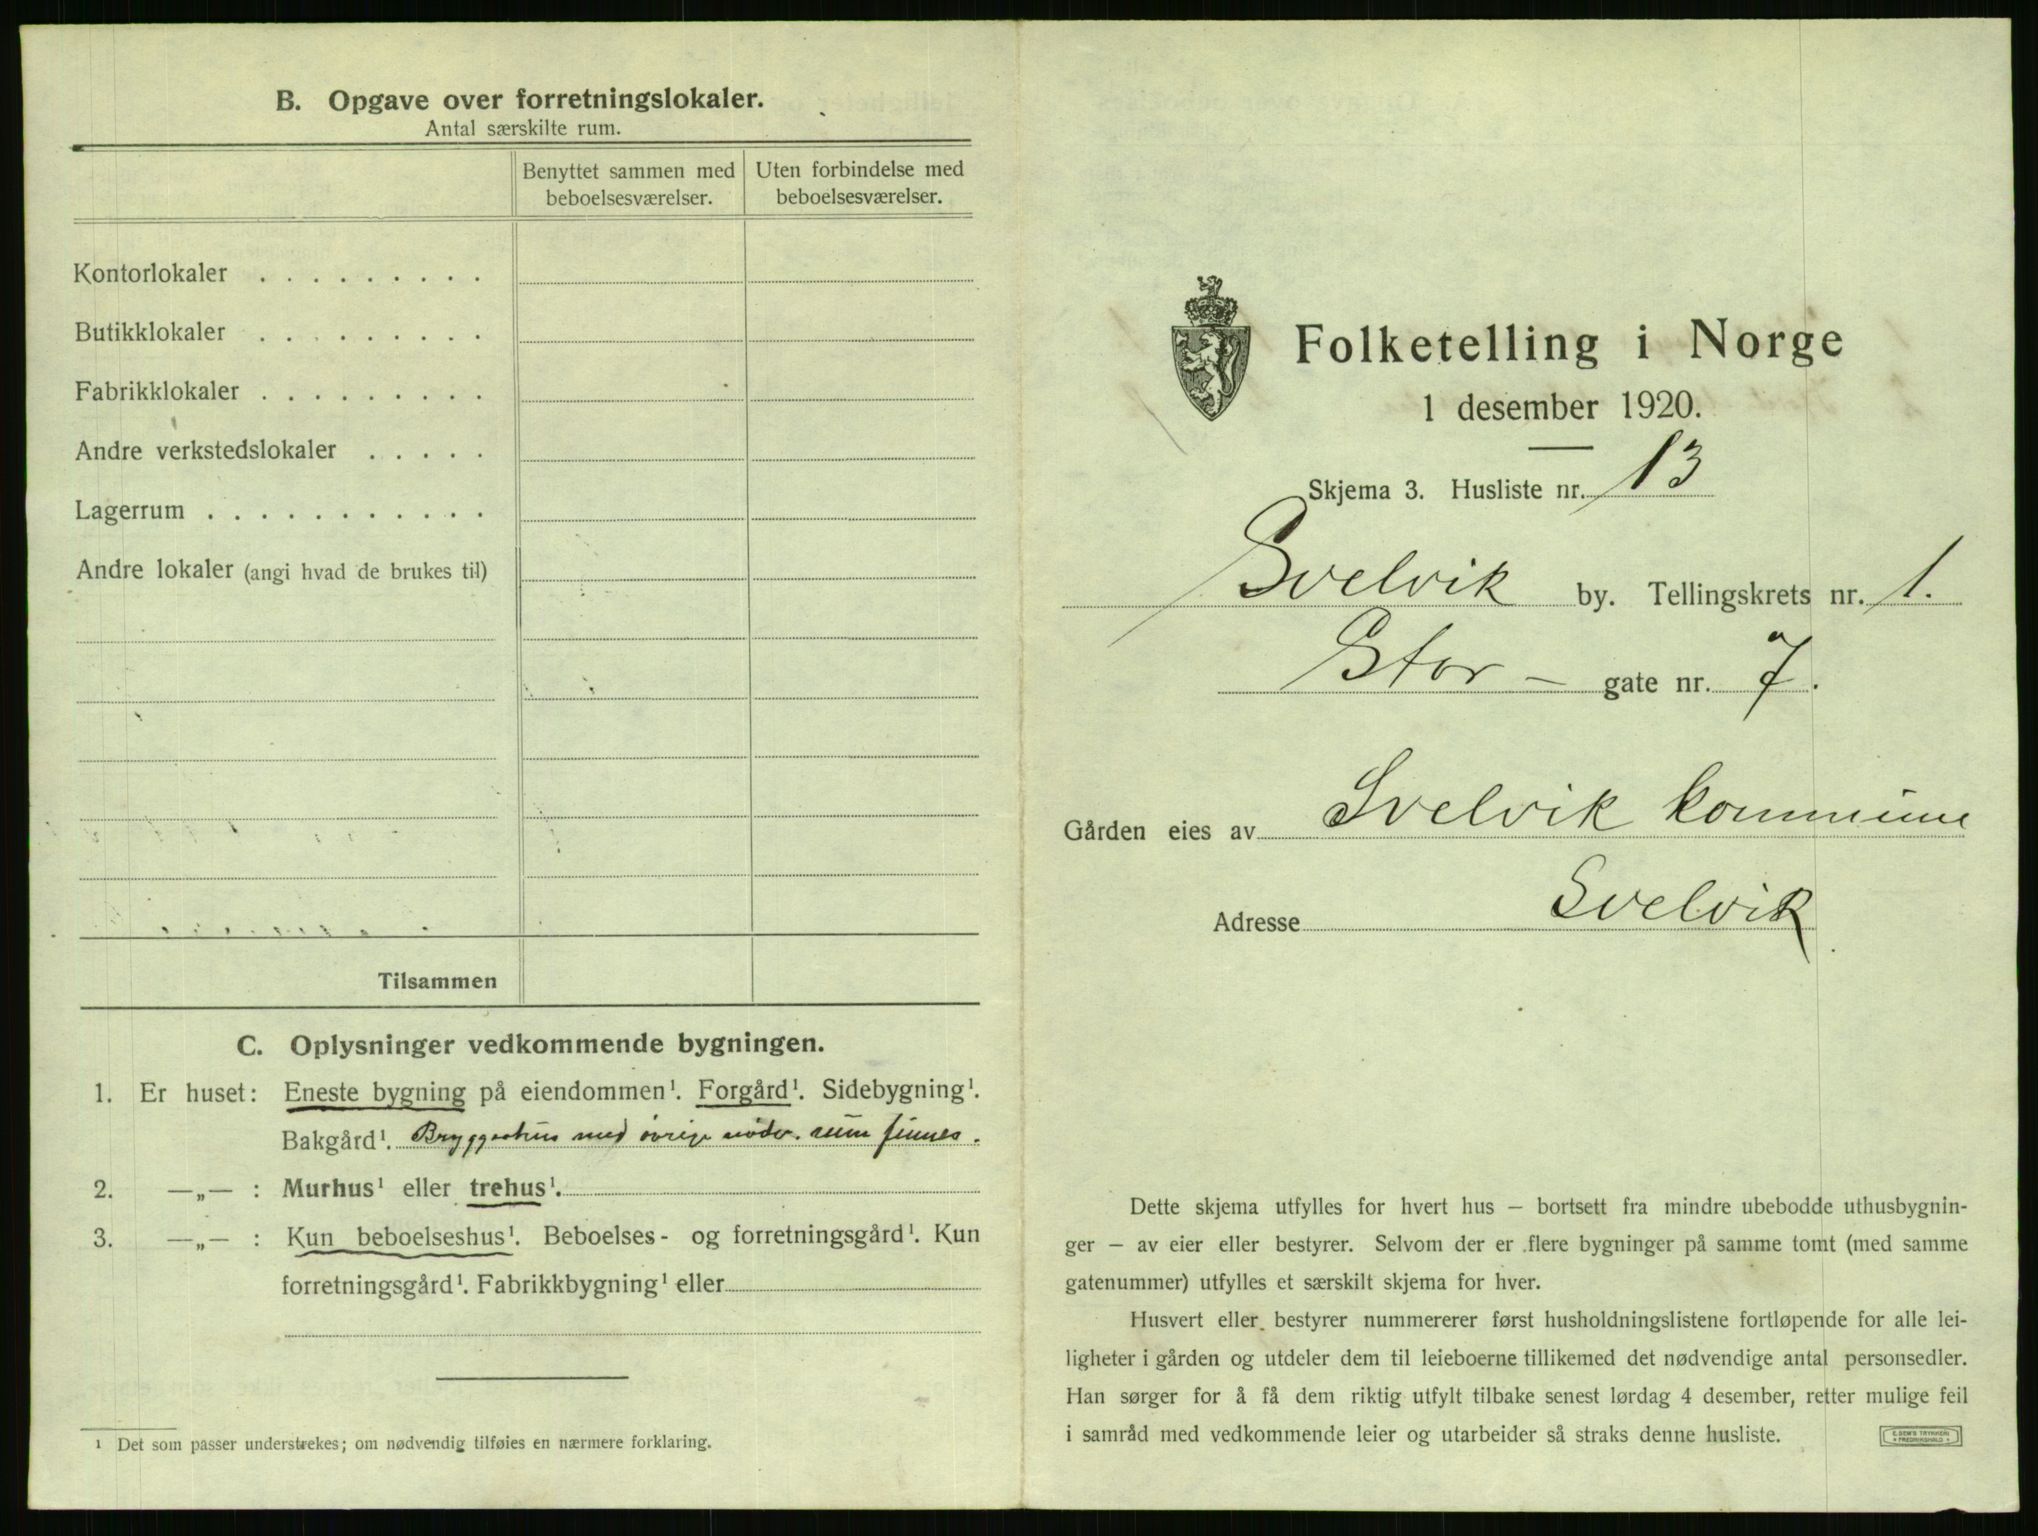 B. Opgave over forretningslokaler.
Antal særskilte rum.
Benyttet sammen med beboelsesværelser.
Uten forbindelse med beboelsesværelser.
Kontorlokaler . . . . . . . . .
Butikklokaler . . . . . . . . .
Fabrikklokaler . . . . . . . . .
Andre verkstedslokaler . . . . .
Lagerrum . . . . . . . . . . .
Andre lokaler (angi hvad de brukes til)
Tilsammen
C. Oplysninger vedkommende bygningen.
1. Er huset: Eneste bygning på eiendommen¹. Forgård¹. Sidebygning¹.
Bakgård¹. Bryggerhus med øvrige nødv. rum finnes.
2. —„— : Murhus¹ eller trehus¹.
3. —„— : Kun beboelseshus¹. Beboelses- og forretningsgård¹. Kun
forretningsgård¹. Fabrikkbygning¹ eller
¹ Det som passer understrekes; om nødvendig tilføies en nærmere forklaring.
Folketelling i Norge
1 desember 1920.
Skjema 3. Husliste nr. 13
Svelvik by. Tellingskrets nr. 1.
Stor- gate nr. 7.
Gården eies av Svelvik kommune
Adresse Svelvik
Dette skjema utfylles for hvert hus – bortsett fra mindre ubebodde uthusbygnin-
ger – av eier eller bestyrer. Selvom der er flere bygninger på samme tomt (med samme
gatenummer) utfylles et særskilt skjema for hver.
Husvert eller bestyrer nummererer først husholdningslistene fortløpende for alle lei-
ligheter i gården og utdeler dem til leieboerne tillikemed det nødvendige antal personsedler.
Han sørger for å få dem riktig utfylt tilbake senest lørdag 4 desember, retter mulige feil
i samråd med vedkommende leier og utarbeider så straks denne husliste.
E. SEM'S TRYKKERI
FREDRIKSHALD